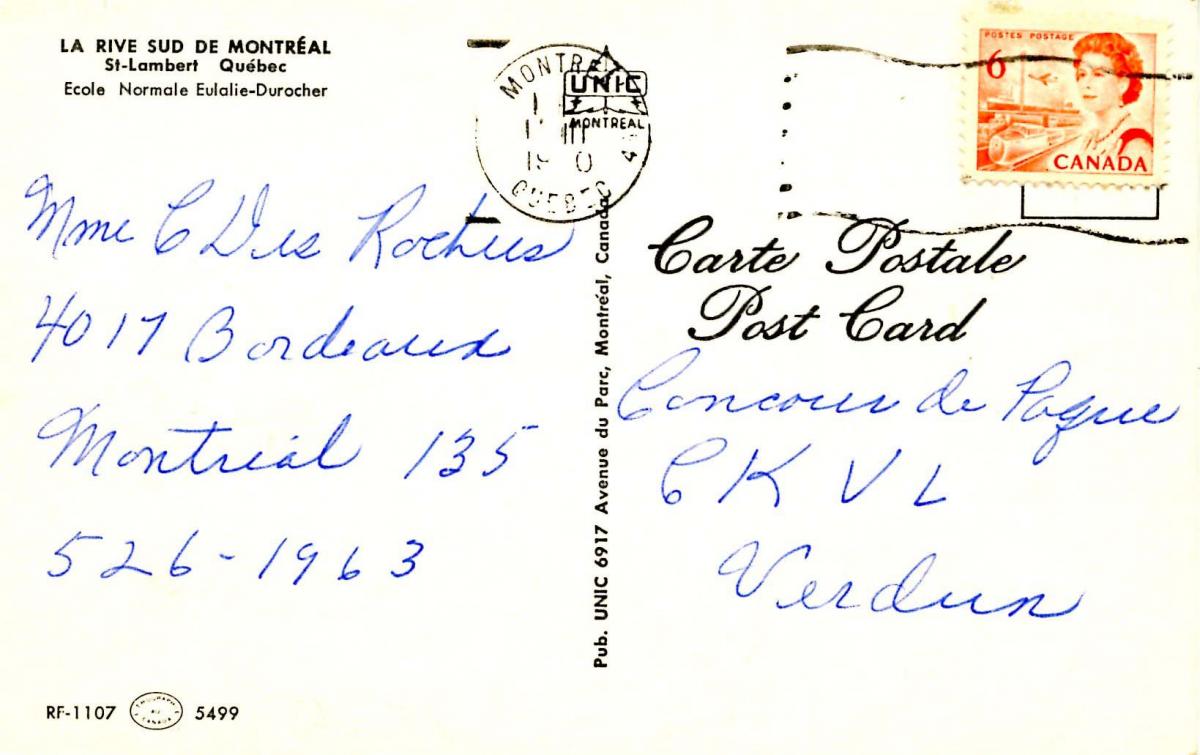 LA RIVE SUD DE MONTRÉAL
St-Lambert Québec
Ecole Normale Eulalie-Durocher
MONTRÉAL
QUEBEC
UNIC
MONTREAL
POSTES POSTAGE
6
CANADA
Carte Postale
Post Card
Mme C Des Rochers
4017 Bordeaux
Montréal 135
526-1963
Pub. UNIC 6917 Avenue du Parc, Montréal, Canada
Concour de Paque
C K V L
Verdun
RF-1107
5499